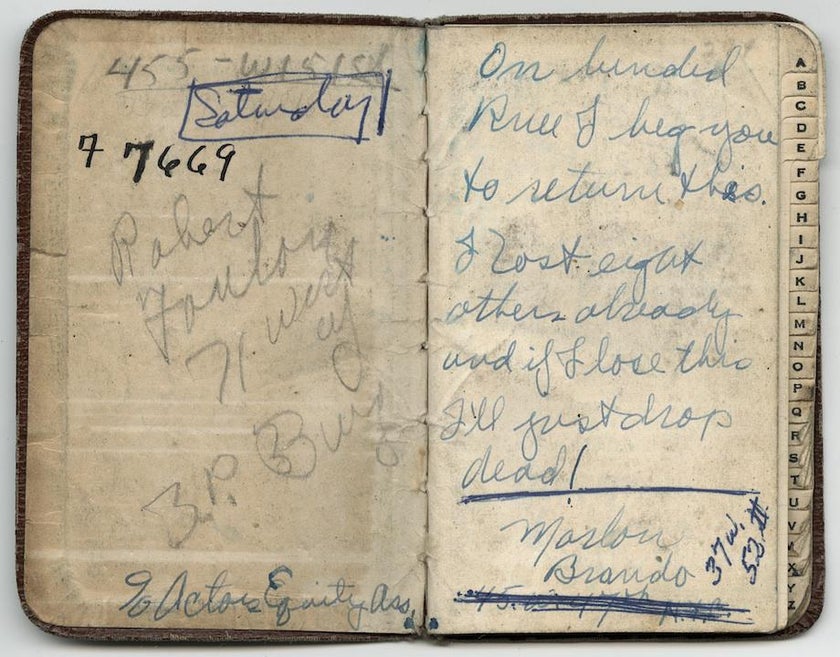 455 - W 51 St
Saturday
7 7669
Robert
71 West
3P. Bus
℅ Actors Equity Ass.
On bended
Knee I beg you
to return this.
I Lost eight
others already
and if I lose this
I'll just drop
dead!
Marlon
Brando
37 W.
52 II
A
B
C
D
E
F
G
H
I
J
K
L
M
N
O
P
Q
R
S
T
U
V
X
Y
Z